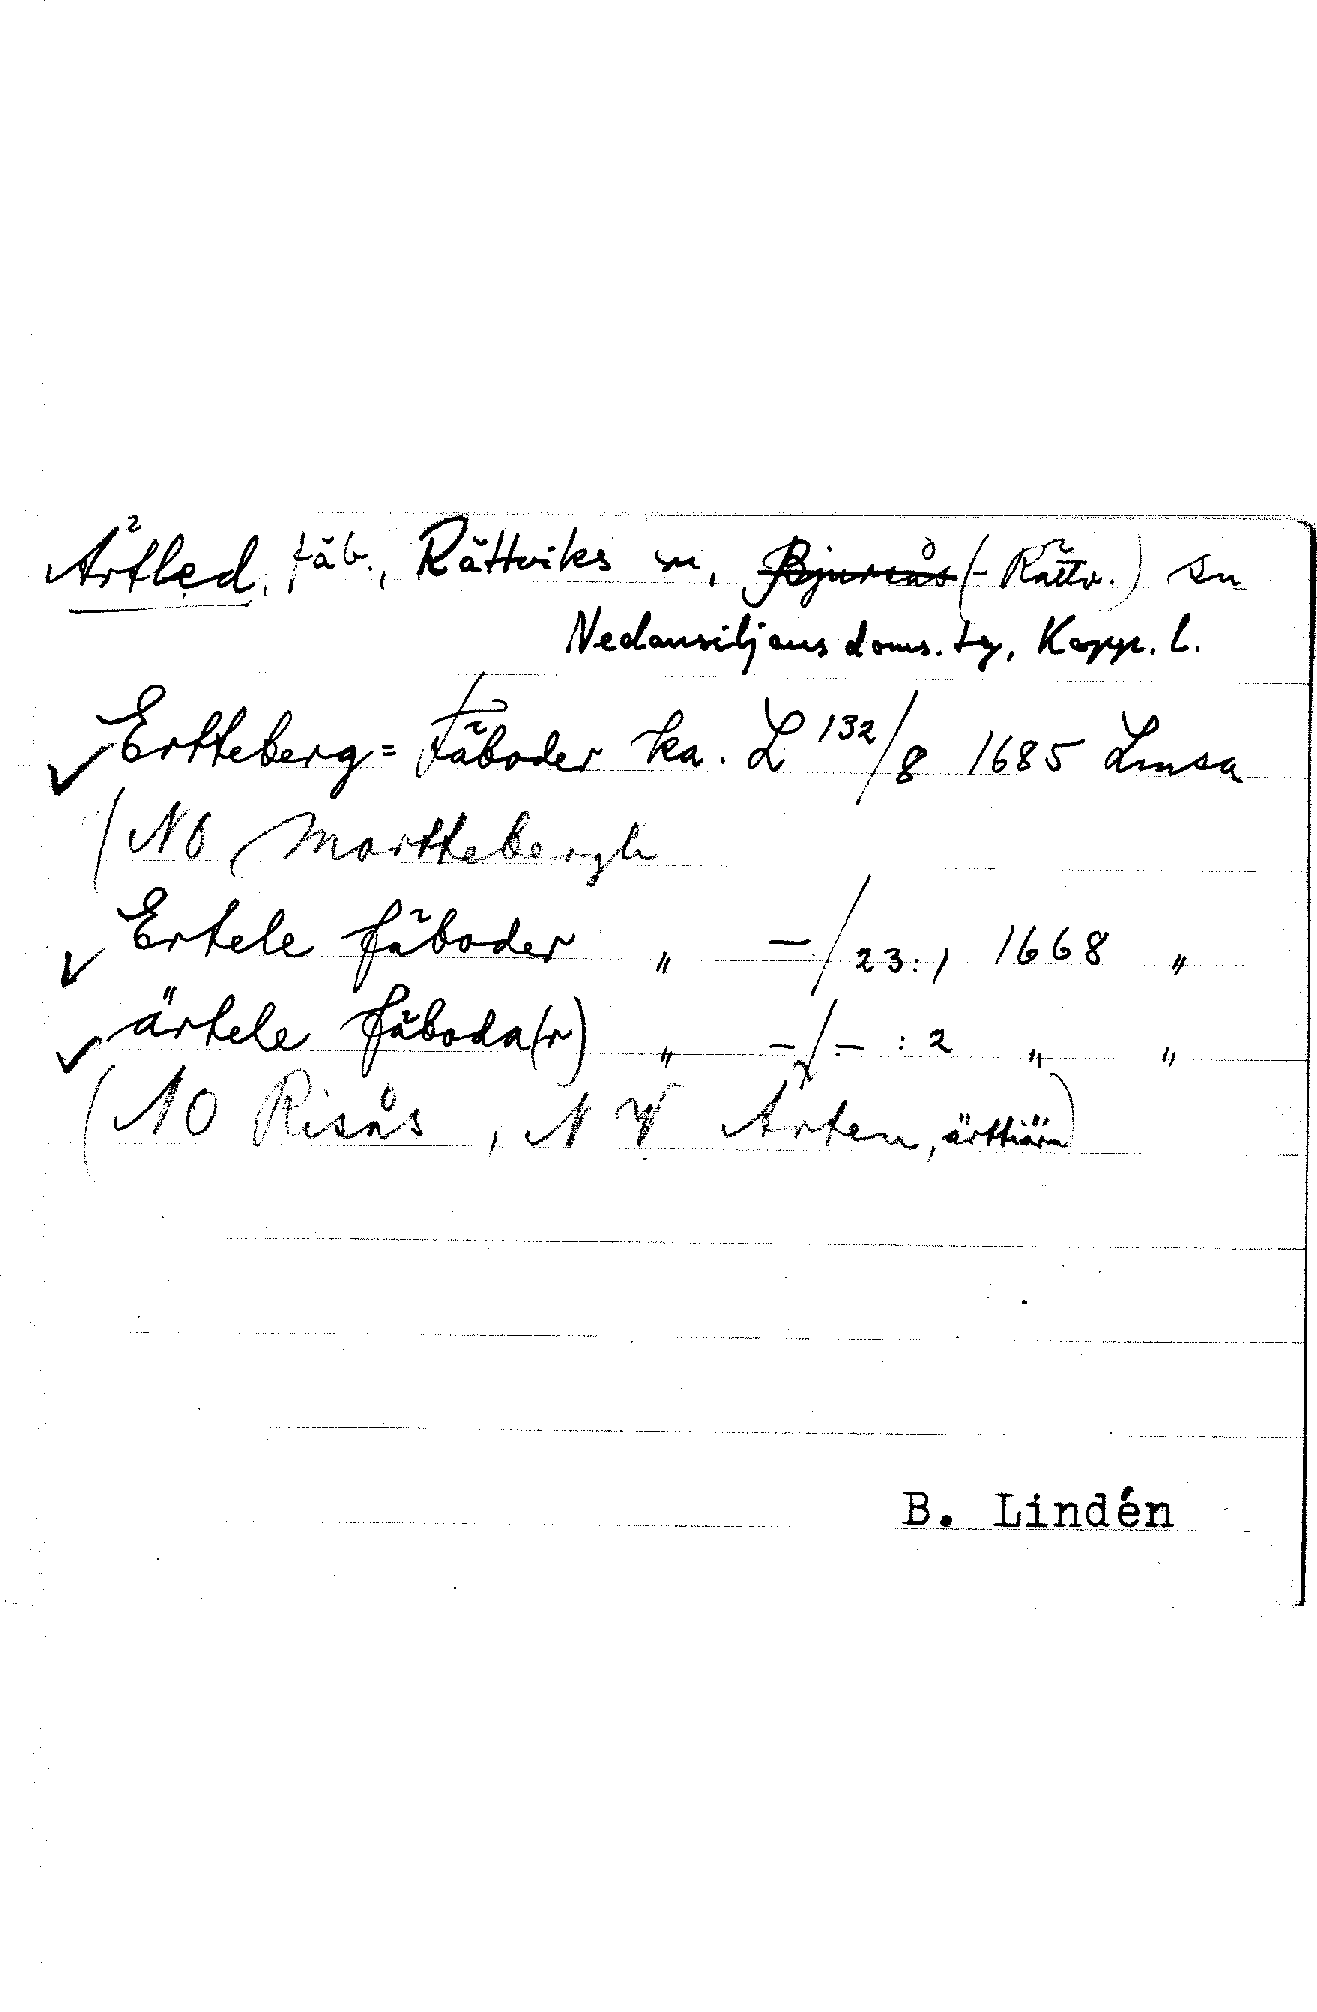 Ärtled, fäb., Rättviks m, ~~Bjursås~~ (- Rättv.) sn
Nedansiljans doms. tg, Kopp. l.
✓ Ertteberg= fäboder ka. L 132/8 1685 Lmsa
(NO Morttebergh
✓ Ertele fäboder „ —/23:1 1668 „
✓ ärtele fäboda(r) „ —/— :2 „ „
(NO Risås, NW Ärten, ärttiärn)
B. Lindén